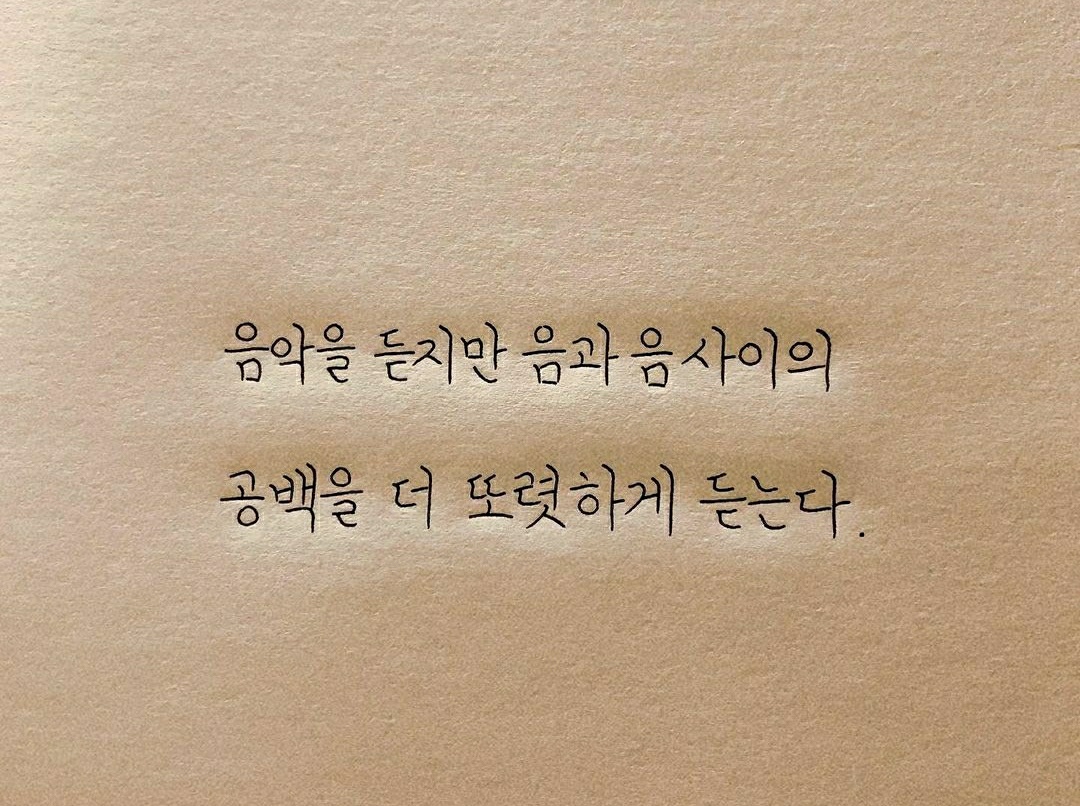 음악을 듣지만 음과 음 사이의
공백을 더 또렷하게 듣는다.